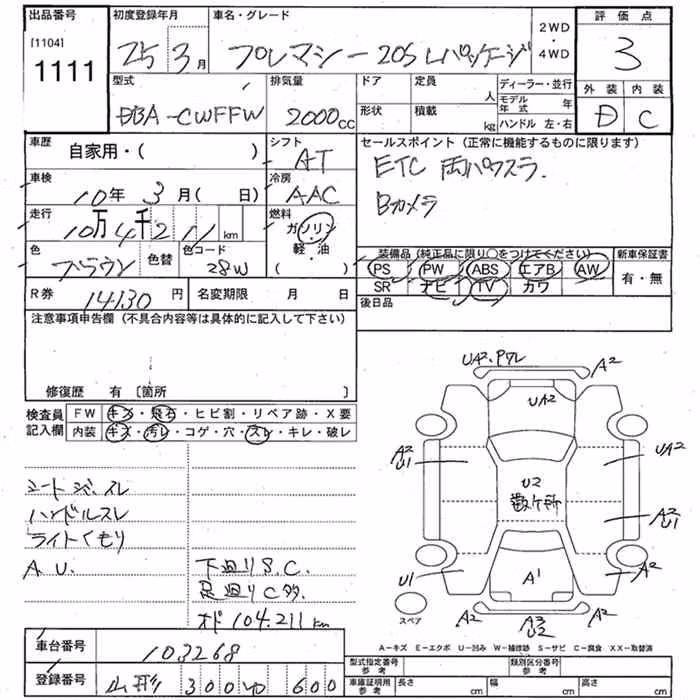 出品番号
[1104]
1111
初度登録年月
25 3月
車名・グレード
プレマシー 20S Lパッケージ
2WD
・
4WD
評価点
3
型式
DBA-CWFFW
排気量
2000cc
ドア
定員
人
形状
積載
kg
ディーラー・並行
モデル年式 年
ハンドル 左・右
外装 内装
D C
車歴
自家用・( )
シフト
AT
セールスポイント (正常に機能するものに限ります)
ETC 両パワスラ.
Bカメラ
車検
10年 3月( 日)
冷房
AAC
走行
10万4千211km
燃料
ガソリン
軽・油
( )
色
ブラウン
色替
色コード
28W
装備品 (純正品に限り○をつけてください)
新車保証書
PS PW ABS エアB AW
SR ナビ TV カワ
有・無
R券 14130円
名変期限 月 日
後日品
注意事項申告欄 (不具合内容等は具体的に記入して下さい)
修復歴 有 〔箇所 〕
検査員記入欄
FW キズ・飛石・ヒビ割・リペア跡・X要
内装 キズ・汚レ・コゲ・穴・スレ・キレ・破レ
ハンドルスレ
ライトくもり
A.U.
下回りS.C.
足回りC多
オド 104.211km
UA2.
A2
UA2
A2
U1
UA2
U2
数ヶ所
A2
U1
U1
A1
A2
スペア
A2
A3
U2
A2
A-キズ E-エクボ U-凹み W-補修跡 S-サビ C-腐食 XX-取替済
車台番号
103268
登録番号
山形 300 600
型式指定番号
参考
類別区分番号
参考
車庫証明用
参考
長さ cm
幅 cm
高さ cm